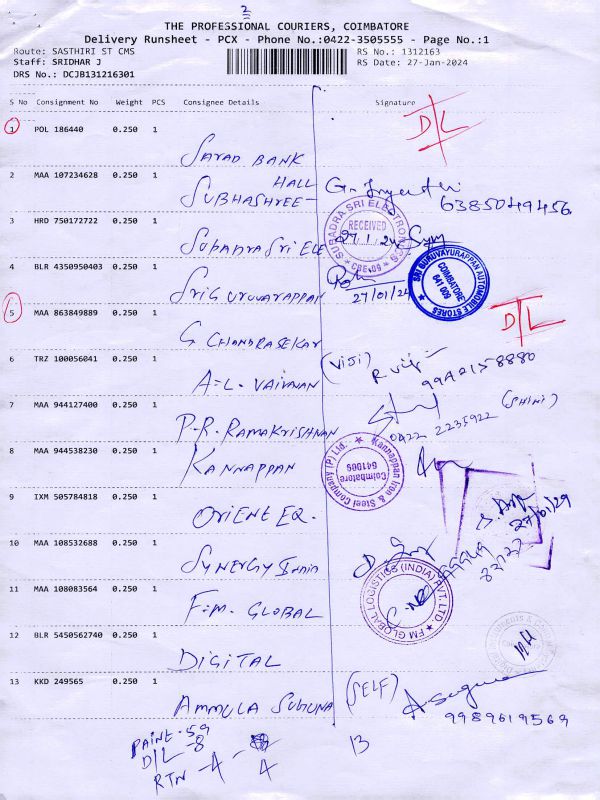 2
THE PROFESSIONAL COURIERS, COIMBATORE
Delivery Runsheet - PCX - Phone No.:0422-3505555 - Page No.:1
Route: SASTHIRI ST CMS
RS No.: 1312163
Staff: SRIDHAR J
RS Date: 27-Jan-2024
DRS No.: DCJB131216301
S No Consignment No Weight PCS Consignee Details Signature
1 POL 186440 0.250 1
D/L
SARAD BANK
2 MAA 107234628 0.250 1
HALL
SUBHASHREE
6385049456
3 HRD 750172722 0.250 1
SUBADRA SRI ELE
SUBADRA SRI ELECTRONICS
RECEIVED
27/1/24
CBE-09
4 BLR 4350950403 0.250 1
SRI GURUVARAPPAN
27/01/24
SRI GURUVAYURAPPAN AUTOMOBILE STORES
COIMBATORE
641 009
5 MAA 863849889 0.250 1
D/L
G CHANDRASEKAR
6 TRZ 100056041 0.250 1
A.L. VAIRAVAN
(VIJI)
R Viji
7 MAA 944127400 0.250 1
P.R. RAMAKRISHNAN
0422 2235922
(SHINI)
8 MAA 944538230 0.250 1
KANNAPPAN
Kannappan Iron & Steel Company (P) Ltd.
Coimbatore
641009
9 IXM 505784818 0.250 1
ORIENT EQ.
10 MAA 108532688 0.250 1
SYNERGY INDIA
11 MAA 108083564 0.250 1
F.M. GLOBAL
FM GLOBAL LOGISTICS (INDIA) PVT. LTD.
12 BLR 5450562740 0.250 1
DIGITAL
13 KKD 249565 0.250 1
AMMULA SUGUNA
(SELF)
9989619569
D/L -8
RTN -4
4
13